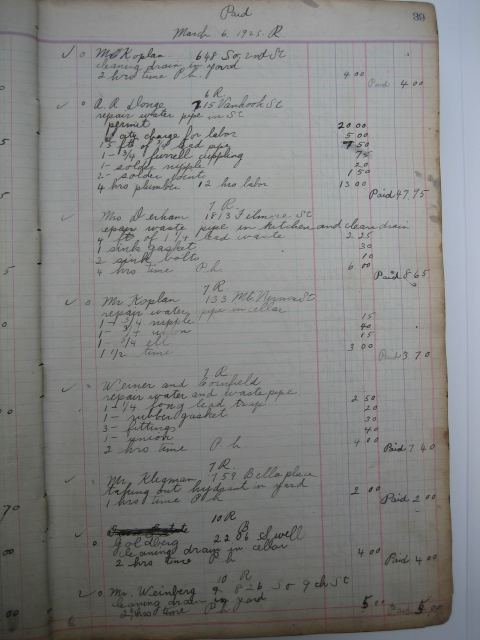 Paid
39
March 6 1925 R
Mr Koplan 648 So 2nd St
cleaning drain in yard
2 hrs time P h 4 00
Paid 4 00
6 R
A A Donge 715 Vanhook St
repair water pipe in St
permit 20 00
city charge for labor 5 00
15 ft of lead pipe 7 50
1 - 3/4 ferrell cuppling 75
1 - solder nipple 20
2 - solder joints 1 50
4 hrs plumber 12 hrs labor 13 00
Paid 47.95
7 R
Mrs Derham 1813 Filmore St
repair waste pipe in kitchen and clean drain
4 ft of 1 1/2 lead waste 2 25
1 sink gasket 30
2 sink bolts 10
4 hrs time P.h 6 00
Paid 8 65
7 R
Mr Koplan 133 Mt Vernon St
repair water pipe in cellar
1 - 3/4 nipple 15
1 - 3/4 union 40
1 - 3/4 ell 15
1 1/2 time 3 00
Paid 3 70
7 R
Werner and Cornfield
repair water and waste pipe
1 - 1 1/4 long lead trap 2 50
1 - rubber gasket 20
3 - fittings 30
1 - union 40
2 hrs time P h 4 00
Paid 7 40
7 R
Mr Kligman 759 Bella place
taking out hydrant in yard
1 hrs time P h 2 00
Paid 2 00
10 R
Goldberg 22 86 Sewell
cleaning drain in cellar
2 hrs time P h 4 00
Paid 4 00
10 R
Mr. Weinberg 826 So 9th St
cleaning drain in yard
2 hrs time P h 5 00
5 00